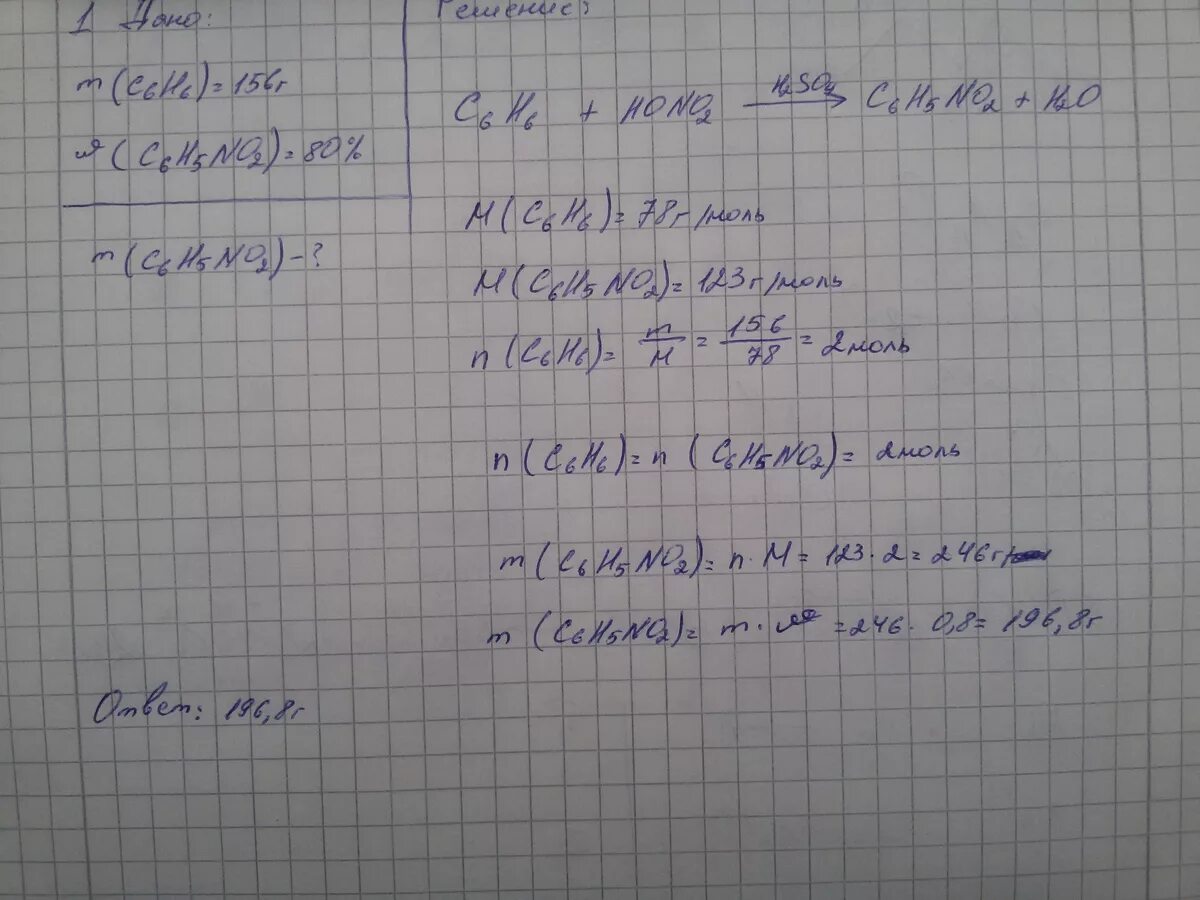 1 Дано:
m(C₆H₆)=156г
(C₆H₅NO₂)=80%
m(C₆H₅NO₂)-?
Решение:
C₆H₆ + HONO₂ H₂SO₄→ C₆H₅NO₂ + H₂O
M(C₆H₆)=78г/моль
M(C₆H₅NO₂)=123г/моль
n(C₆H₆)= m/M = 156/78 = 2моль
n(C₆H₆)=n(C₆H₅NO₂)= 2моль
m(C₆H₅NO₂)= n·M = 123·2= 246г
m(C₆H₅NO₂)= m· =246· 0,8= 196,8г
Ответ: 196,8г